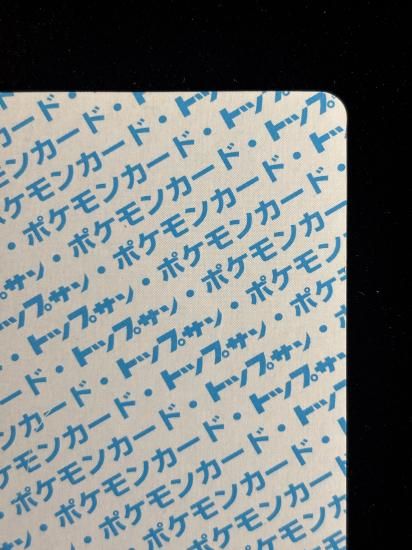 カード・
ンカード・トップ
ケモンカード・トップ
・ポケモンカード・トップ
サン・ポケモンカード・
プサン・ポケモンカード
トップサン・ポケモンカード
・トップサン・ポケモンカ
ド・トップサン・ポケモン
カード・トップサン・ポ
ンカード・トップサン・
モンカード・トップサン
ポケモンカード・トップ
・ポケモンカード・
ポケモンカード